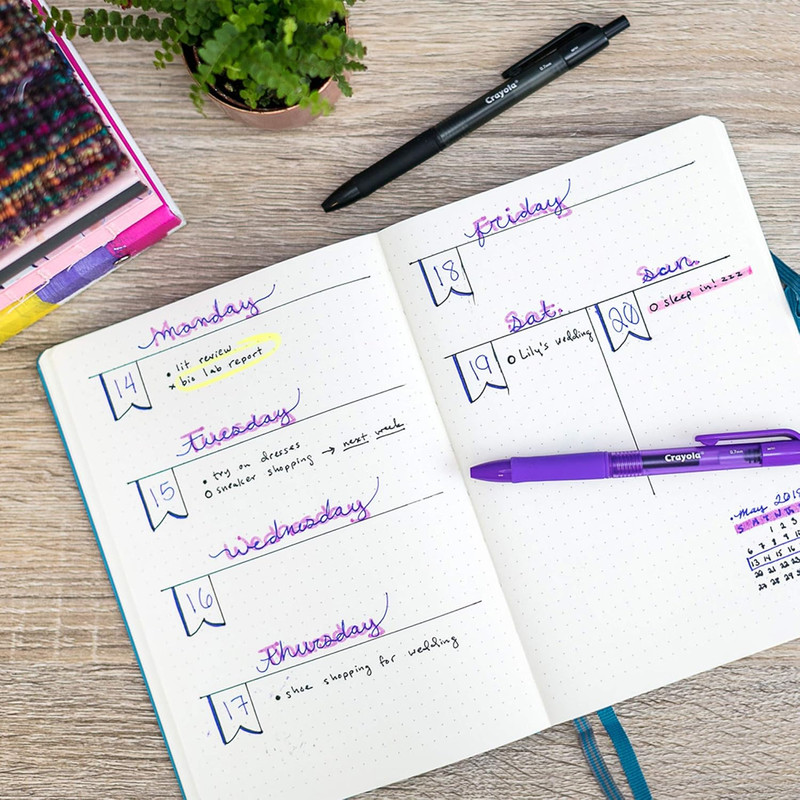 Monday
14
• lit review
x bio lab report
Tuesday
15
• try on dresses
O sneaker shopping → next week
Wednesday
16
Thursday
17
• shoe shopping for wedding
Friday
18
Sat.
19
O Lily's wedding
Sun.
20
O sleep in! zzz
Crayola
0.7mm
Crayola
0.7mm
May
S M T W
1 2 3
6 7 8 9 10
13 14 15 16
20 21 22 23
27 28 29